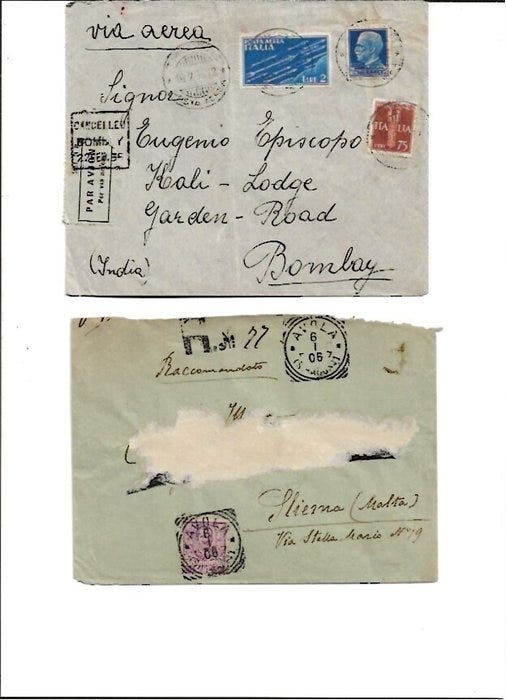 via aerea
POSTA AEREA
ITALIA
LIRE 2
Signor
ITALIA
75
CANCELLED
BOMBAY
PAR AVION
Eugenio Episcopo
Kali-Lodge
Garden-Road
(India)
Bombay
R. N 77
Raccomandato
AVOLA
6
1
06
Sliema (Malta)
Via Stella Maris No 9
AVOLA
6
1
06